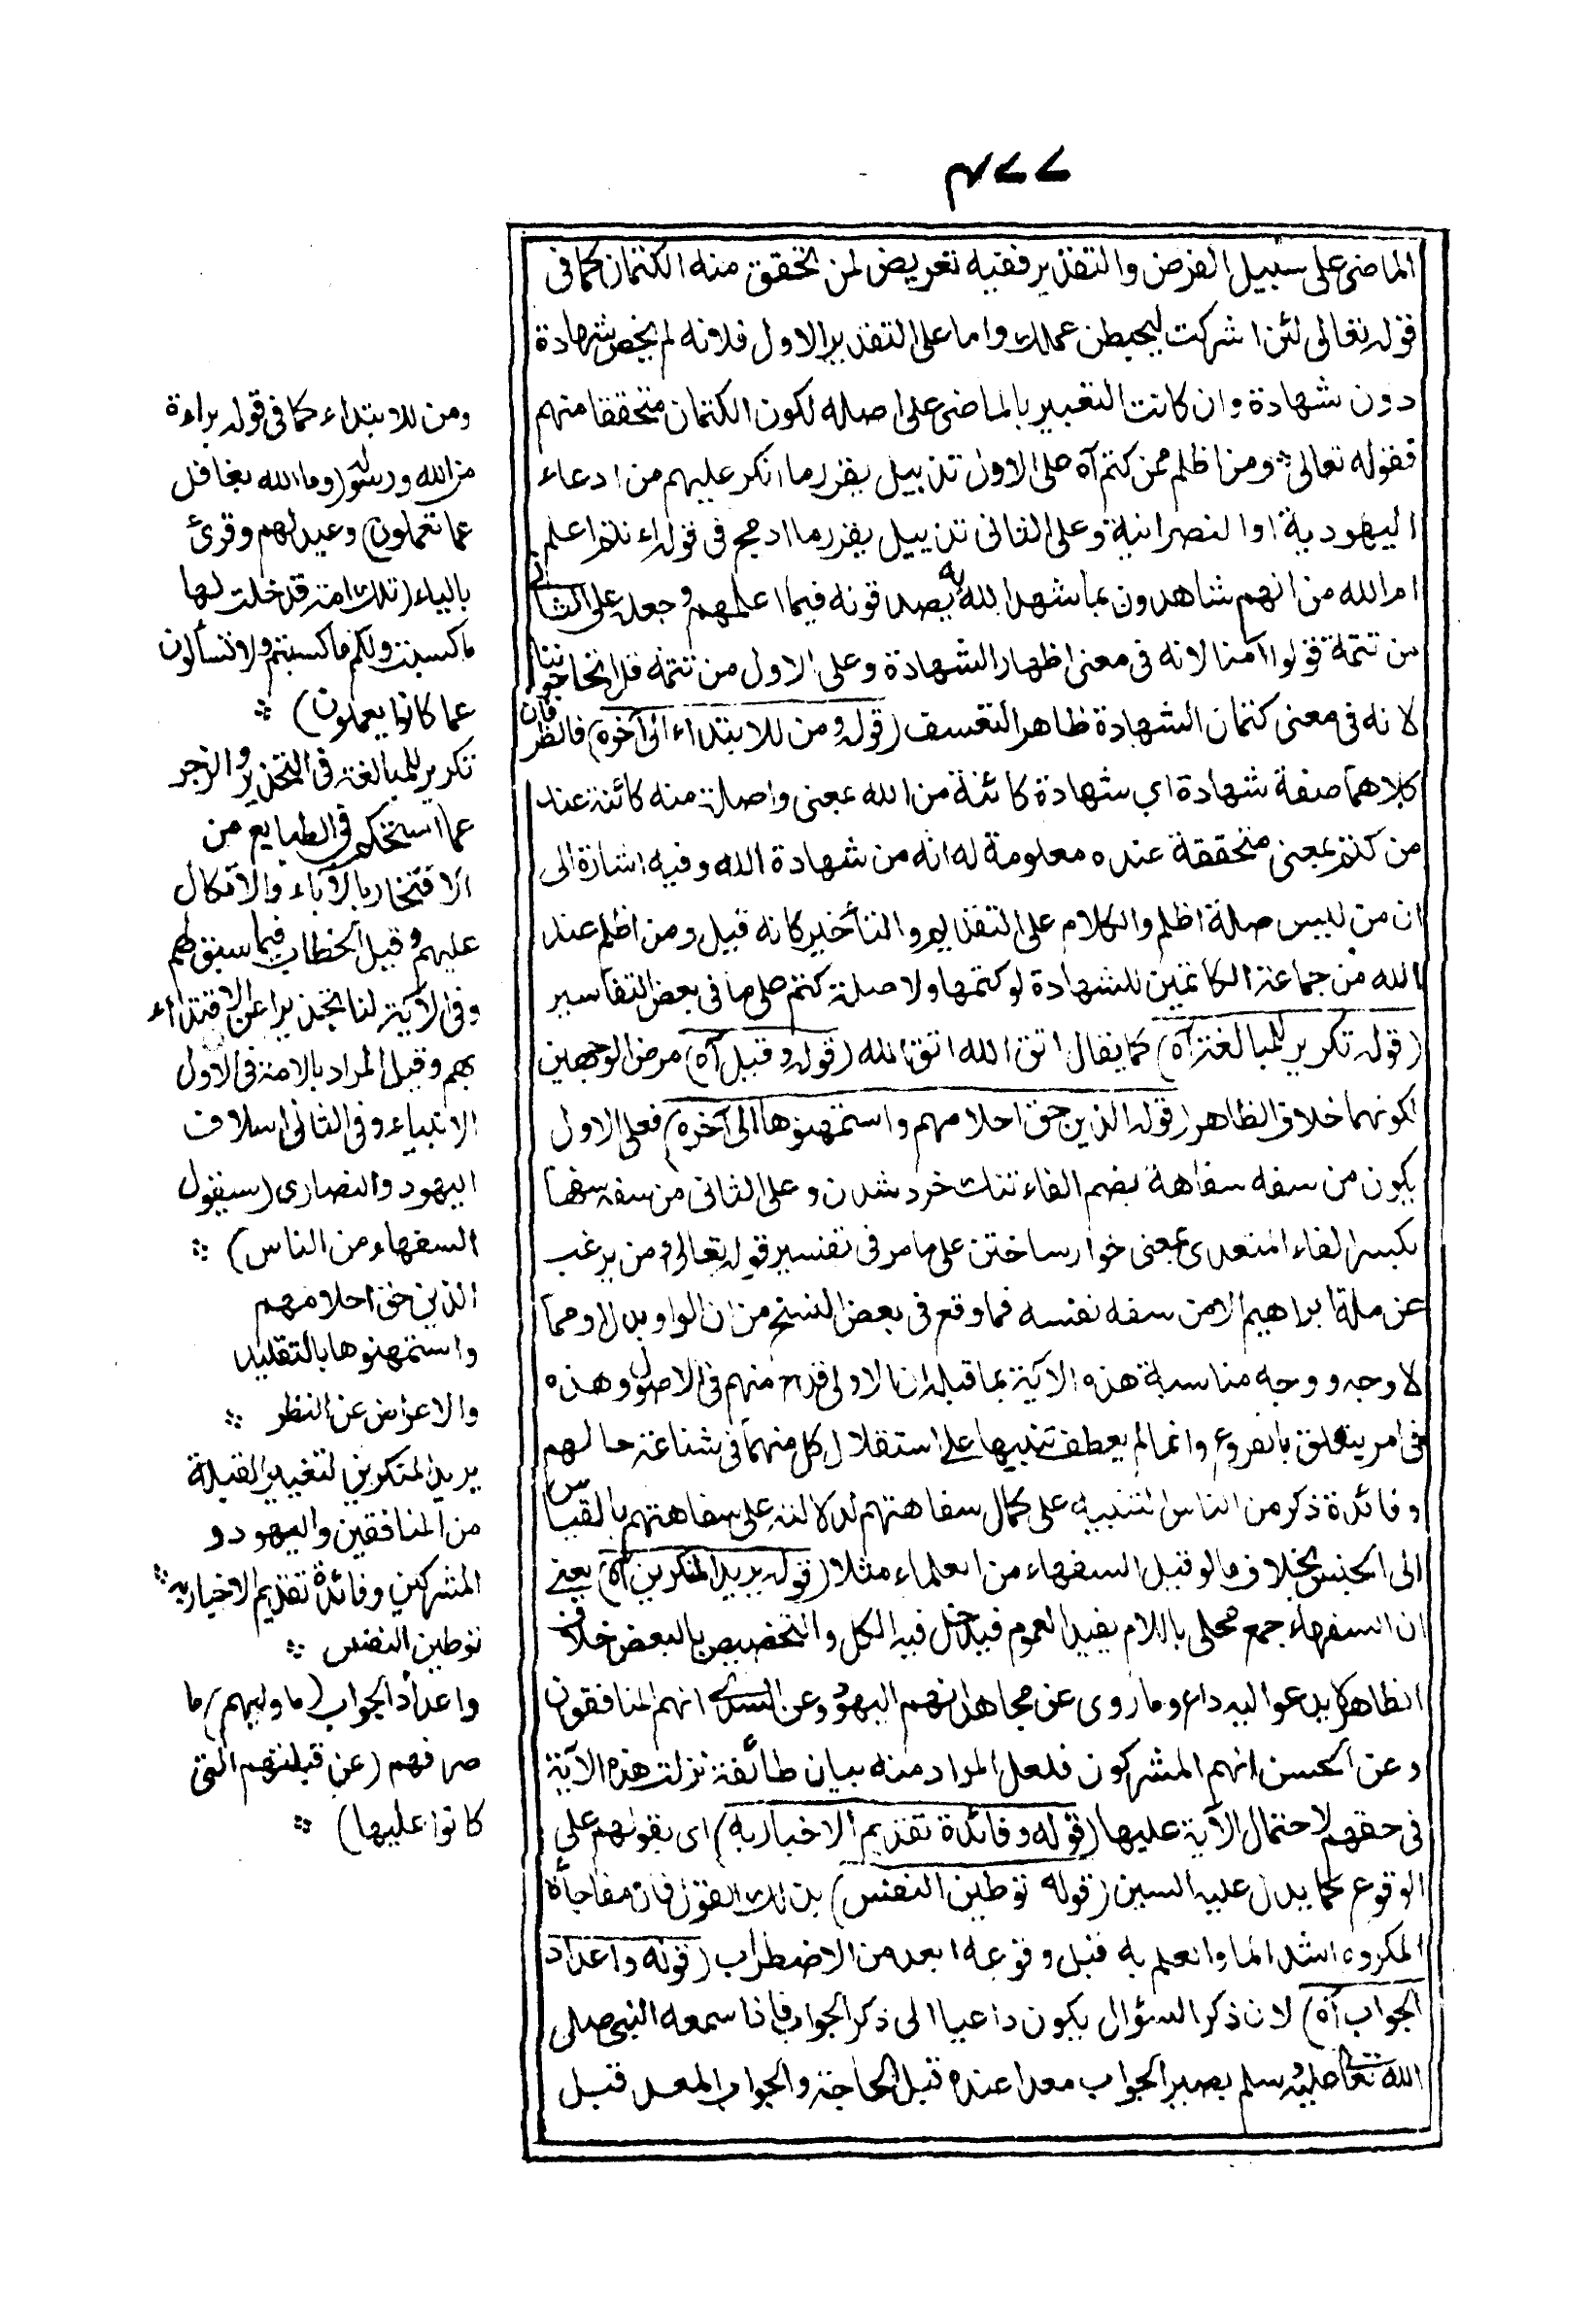 ٤٧٧
الماضى على سبيل الفرض والتقدير ففيه تعريض لمن تحقق منه الكتمان كما فى
قوله تعالى لئن اشركت ليحبطن عملك واما على التقدير الاول فلانه لم يخص شهادة
دون شهادة وان كانت التعبير بالماضى على اصله لكون الكتمان متحققا منهم
فقوله تعالى ومن اظلم ممن كتم آه على الاول تذييل يقرر ما انكر عليهم من ادعاء
اليهودية او النصرانية وعلى الثانى تذييل يقرر ما ادمج فى قوله ءانتم اعلم
ام الله من انهم شاهدون بما شهد الله به يصدقونه فيما اعلمهم وجعله على الثانى
من تتمة قولوا آمنا لانه فى معنى اظهار الشهادة وعلى الاول من تتمة قل اتحاجوننا
لانه فى معنى كتمان الشهادة ظاهر التعسف (قوله ومن للابتداء الى آخره) فالظرفان
كلاهما صفة شهادة اي شهادة كائنة من الله بمعنى واصلة منه كائنة عند
من كتم بمعنى متحققة عنده معلومة له انه من شهادة الله وفيه اشارة الى
ان من ليس صلة اظلم والكلام على التقديم والتأخير كانه قيل ومن اظلم عند
الله من جماعة الكاتمين للشهادة لو كتمها ولا صلة كتم على ما فى بعض التفاسير
(قوله تكرير للمبالغة آه) كما يقال اتق الله اتق الله (قوله وقيل آه) مرض الوجهين
لكونهما خلاف الظاهر (قوله الذين خف احلامهم واستمهنوها الى آخره) فعلى الاول
يكون من سفه سفاهة بضم الفاء تنك خرد شدن وعلى الثانى من سفه سفها
بكسر الفاء المتعدى بمعنى خوار ساختن على ما مر فى تفسير قوله تعالى ومن يرغب
عن ملة ابراهيم الا من سفه نفسه فما وقع فى بعض النسخ من ان الواو بدل او مما
لا وجه ووجه مناسبة هذه الآية بما قبله ان الاولى قدح منهم فى الاصول وهذه
فى امر يتعلق بالفروع وانما لم يعطف تنبيها على استقلال كل منهما فى شناعة حالهم
وفائدة ذكر من الناس التنبيه على كمال سفاهتهم لدلالته على سفاهتهم بالقياس
الى الجنس بخلاف ما لو قيل السفهاء من العلماء مثلا (قوله يريد المنكرين آه) يعنى
ان السفهاء جمع محلى باللام يفيد العموم فيدخل فيه الكل والتخصيص بالبعض خلاف
الظاهر لا يدعو اليه داع وما روى عن مجاهد انهم اليهود وعن السدى انهم المنافقون
وعن الحسن انهم المشركون فلعل المراد منه بيان طائفة نزلت هذه الآية
فى حقهم لاحتمال الآية عليها (قوله وفائدة تقديم الاخبار به) اى بقولهم على
الوقوع كما يدل عليه السين (قوله توطين النفس) بذلك القول فان مفاجأة
المكروه اشد الما والعلم به قبل وقوعه ابعد من الاضطراب (قوله واعداد
الجواب آه) لان ذكر السؤال يكون داعيا الى ذكر الجواب فاذا سمعه النبى صلى
الله تعالى عليه وسلم يصير الجواب معدا عنده قبل الحاجة والجواب المعد قبل
ومن للابتداء كما فى قوله براءة
من الله ورسوله (وما الله بغافل
عما تعملون) وعيد لهم وقرئ
بالياء (تلك امة قد خلت لها
ما كسبت ولكم ما كسبتم ولا تسألون
عما كانوا يعملون) ∴
تكرير للمبالغة فى التحذير والزجر
عما استحكم فى الطبايع من
الافتخار بالآباء والاتكال
عليهم وقيل الخطاب فيما سبق لهم
وفى الآية لنا تحذيرا عن الاقتداء
بهم وقيل المراد بالامة فى الاول
الانبياء وفى الثانى اسلاف
اليهود والنصارى (سيقول
السفهاء من الناس) ∴
الذين خف احلامهم
واستمهنوها بالتقليد
والاعراض عن النظر ∴
يريد المنكرين لتغيير القبلة
من المنافقين واليهود و
المشركين وفائدة تقديم الاخبار به ∴
توطين النفس ∴
واعداد الجواب (ما وليهم) ما
صرفهم (عن قبلتهم التى
كانوا عليها) ∴